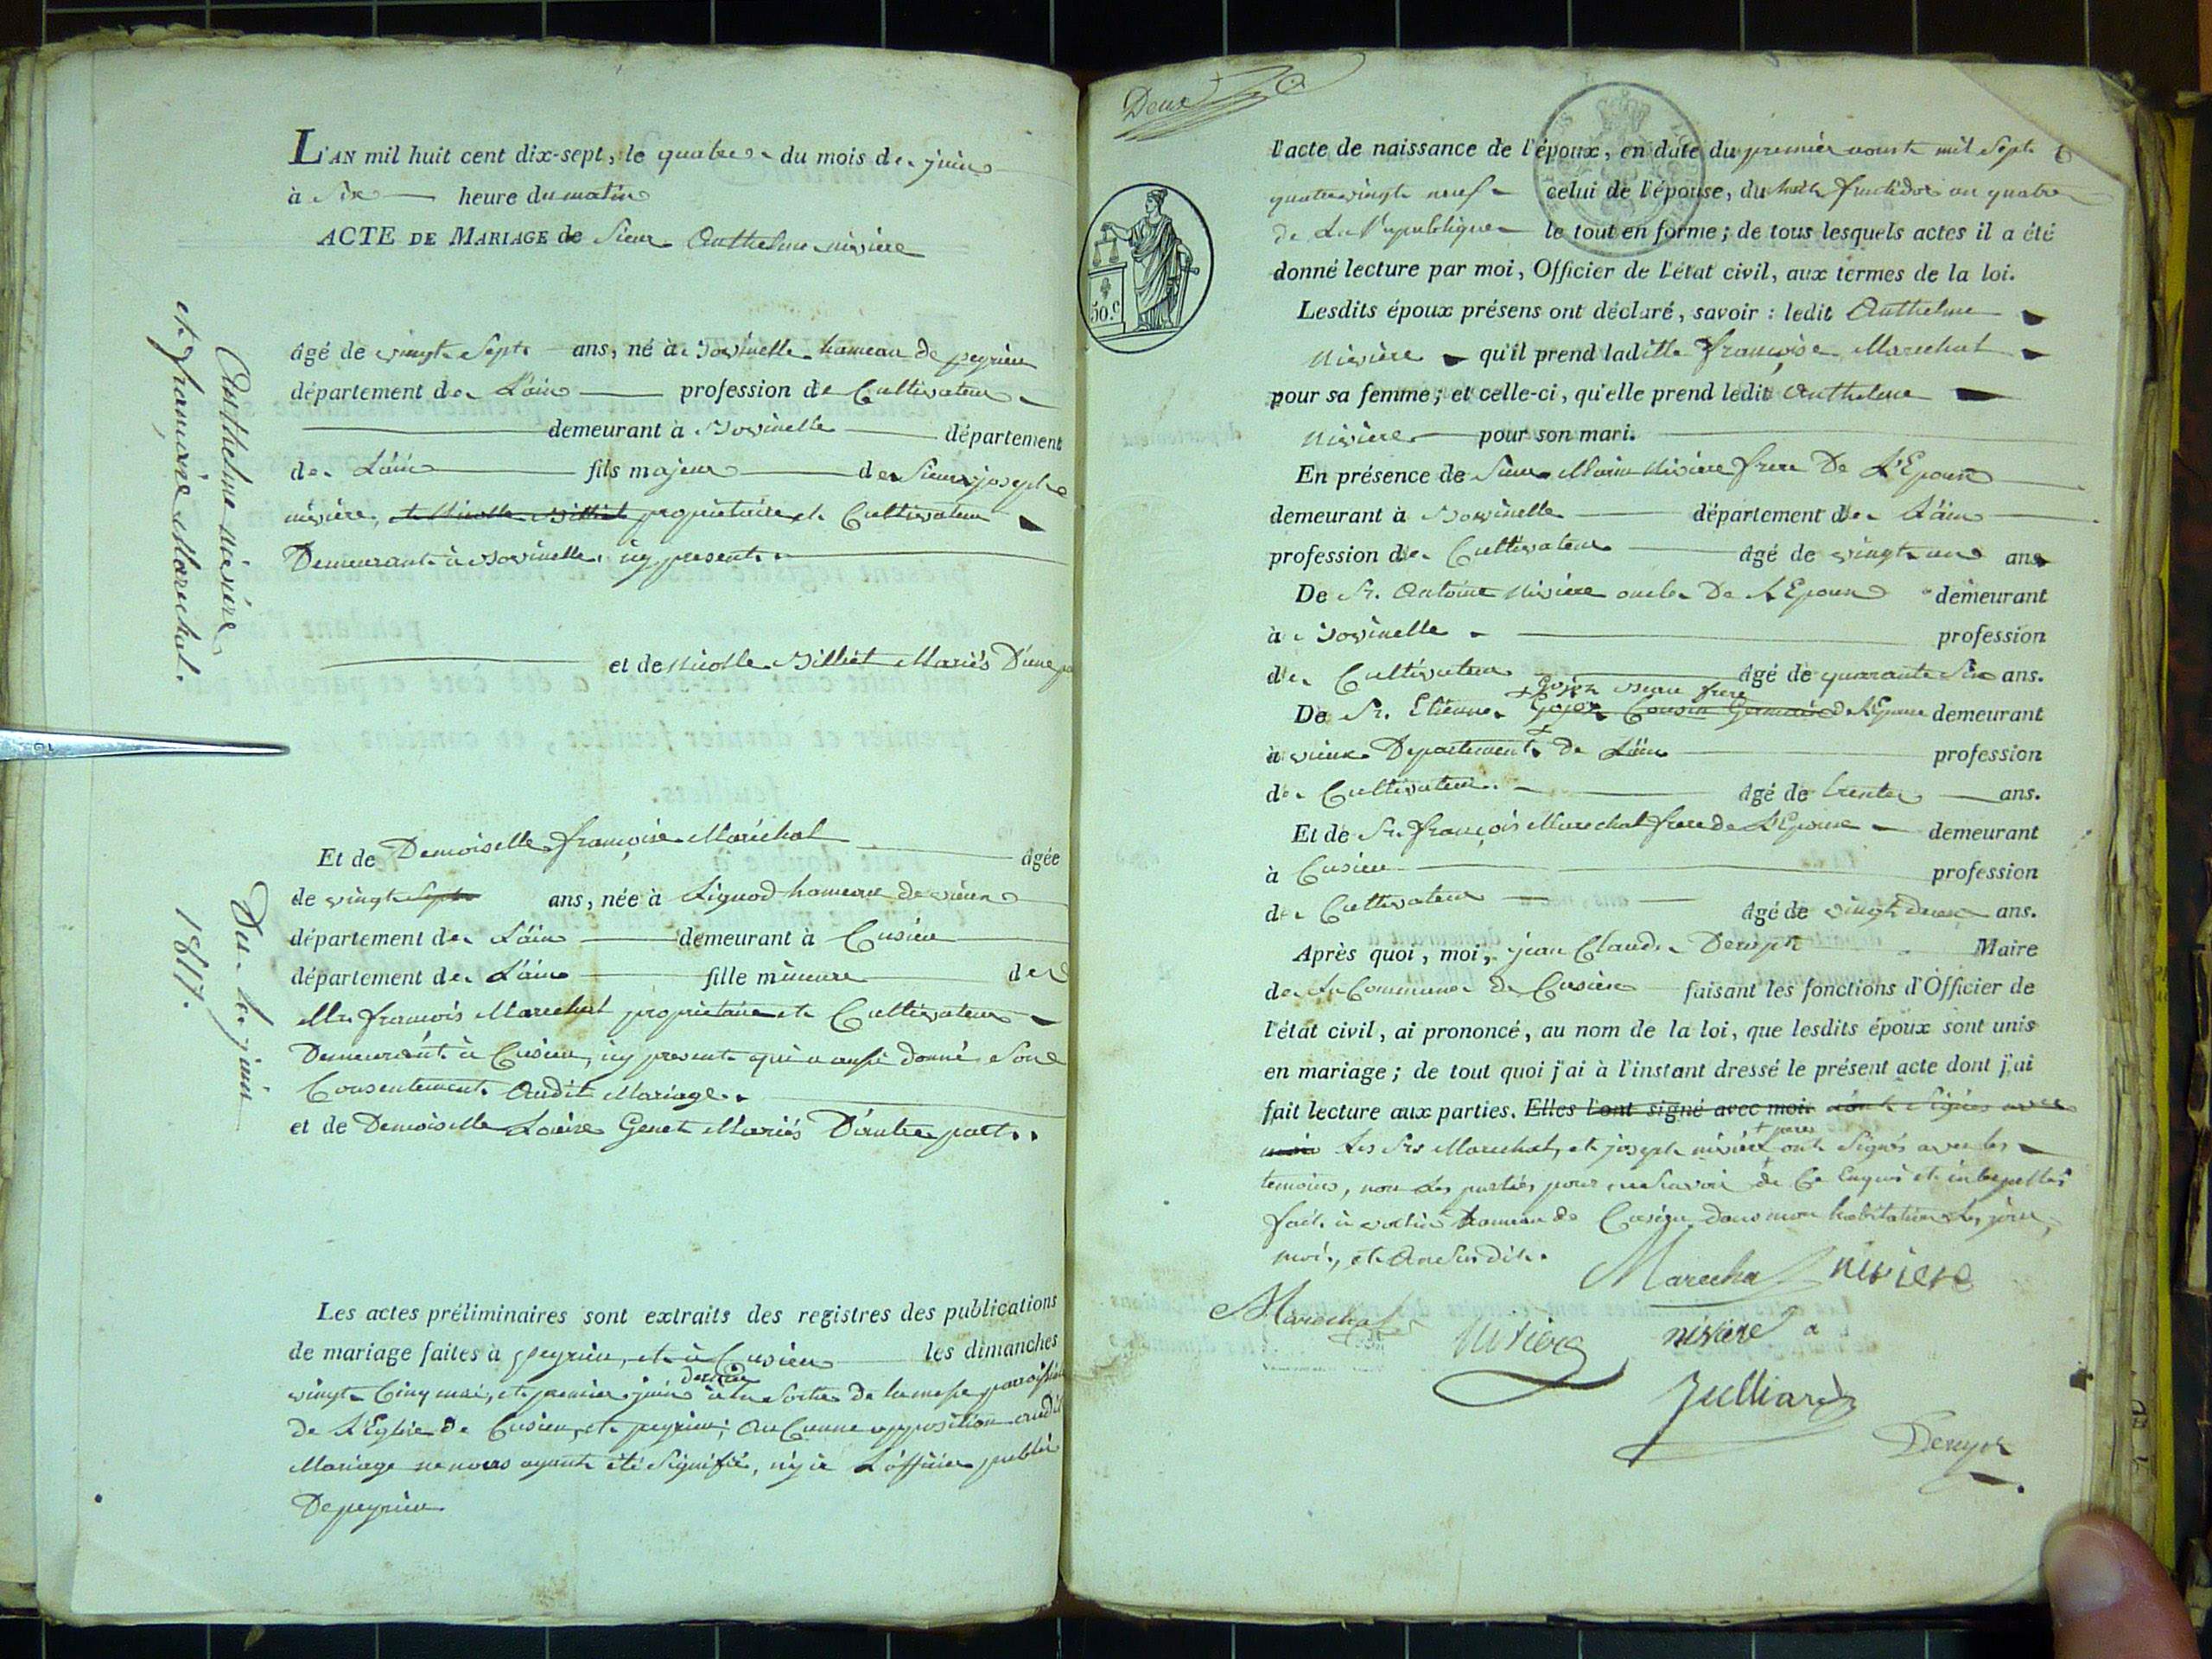 L'AN mil huit cent dix-sept, le quatre du mois de juin
à six heure du matin
ACTE DE MARIAGE de Sieur Anthelme nivière
Anthelme nivière
et françoise Marechal.
Du 4 juin
1817.
âgé de vingt Sept ans, né à hameau de peyrieu
département de L'ain profession de Cultivateur
demeurant à département
de L'ain fils majeur de Sieur joseph
nivière, propriétaire et Cultivateur
Demeurant à icy present.
et de Nicolle Billiet Mariés D'une
Et de Demoiselle françoise Maréchal âgée
de vingt Sept ans, née à Lignod hameau de vieux
département de L'ain demeurant à Cusieu
département de L'ain fille mineure de
Mr. francois Marechal propriétaire et Cultivateur
Demeurant à Cusieu, icy present qui a aussi donné Son
Consentement Audit Mariage.
et de Demoiselle Louise Genet Mariés D'autre part.
Les actes préliminaires sont extraits des registres des publications
de mariage faites à peyrieu, et à Cusieu les dimanches
vingt Cinq mai, et premier juin dernier à la Sortie de la messe paroissiale
de L'Eglise de Cusieu, et peyrieu; Aucunne opposition audit
Mariage ne nous ayant été Signifié, n'y à L'officier public
De peyrieu
Deux
l'acte de naissance de l'époux, en date du premier aoust mil Sept
quatre vingt neuf celui de l'épouse, du fructidor an quatre
de La Republique le tout en forme; de tous lesquels actes il a été
donné lecture par moi, Officier de l'état civil, aux termes de la loi.
50.c
Lesdits époux présens ont déclaré, savoir: ledit Anthelme
Nivière qu'il prend ladille françoise Marechal
pour sa femme; et celle-ci, qu'elle prend ledit Anthelme
Nivière pour son mari.
En présence de Sieur Nivière frere De L'Epoux
demeurant à département de L'ain
profession de Cultivateur âgé de vingt un ans
De Sr. Antoine Nivière oncle De L'Epoux demeurant
à profession
de Cultivateur âgé de quarante Six ans.
Gojon Beau frere
De Sr. Etienne Gojon Cousin Germain de L'Epouse demeurant
à vieux Departement De L'ain profession
de Cultivateur. âgé de trente ans.
Et de Sr. françois Marechal frere de L'Epouse demeurant
à Cusieu profession
de Cultivateur âgé de vingt deux ans.
Après quoi, moi, jean Claude Maire
de La Commune De Cusieu faisant les fonctions d'Officier de
l'état civil, ai prononcé, au nom de la loi, que lesdits époux sont unis
en mariage; de tout quoi j'ai à l'instant dressé le présent acte dont j'ai
fait lecture aux parties. Elles l'ont signé avec moi. ont Signés avec
moi Les Srs Marechal, et joseph nivière peres ont Signés avec les
temoins, non Les parties pour ne Savoir de Ce Enquis et interpellés
fait à hameau de Cusieu dans mon habitation Les jour,
mois, et An Susdits.
Marechal nivière
Marechal Nivière nivière a
Julliard